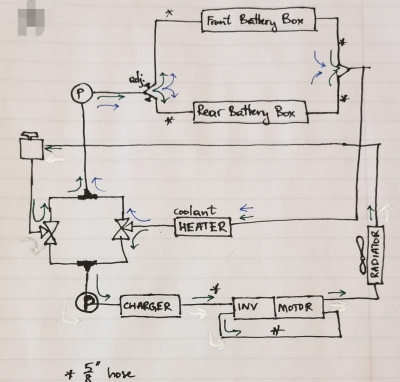 *
Front Battery Box
*
adj.
P
*
Rear Battery Box
*
coolant
HEATER
RADIATOR
P
CHARGER
*
INV
MOTOR
*
* 5/8" hose